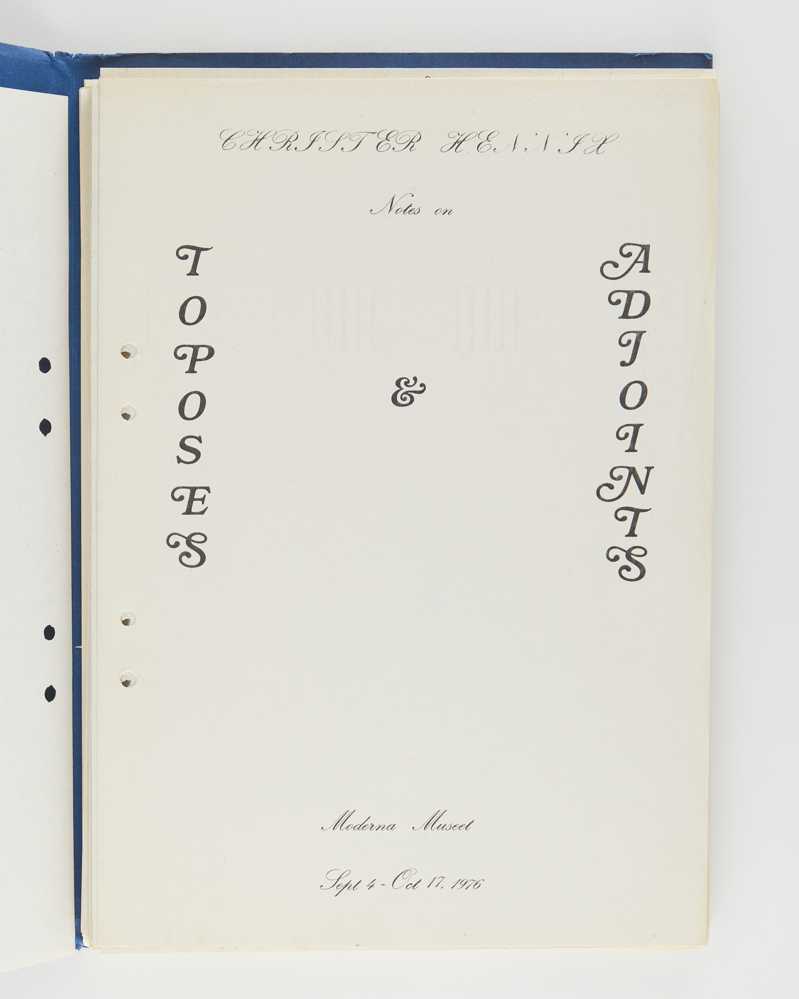 CHRISTER HENNIX
Notes on
TOPOSES
&
ADJOINTS
Moderna Museet
Sept 4 - Oct 17. 1976